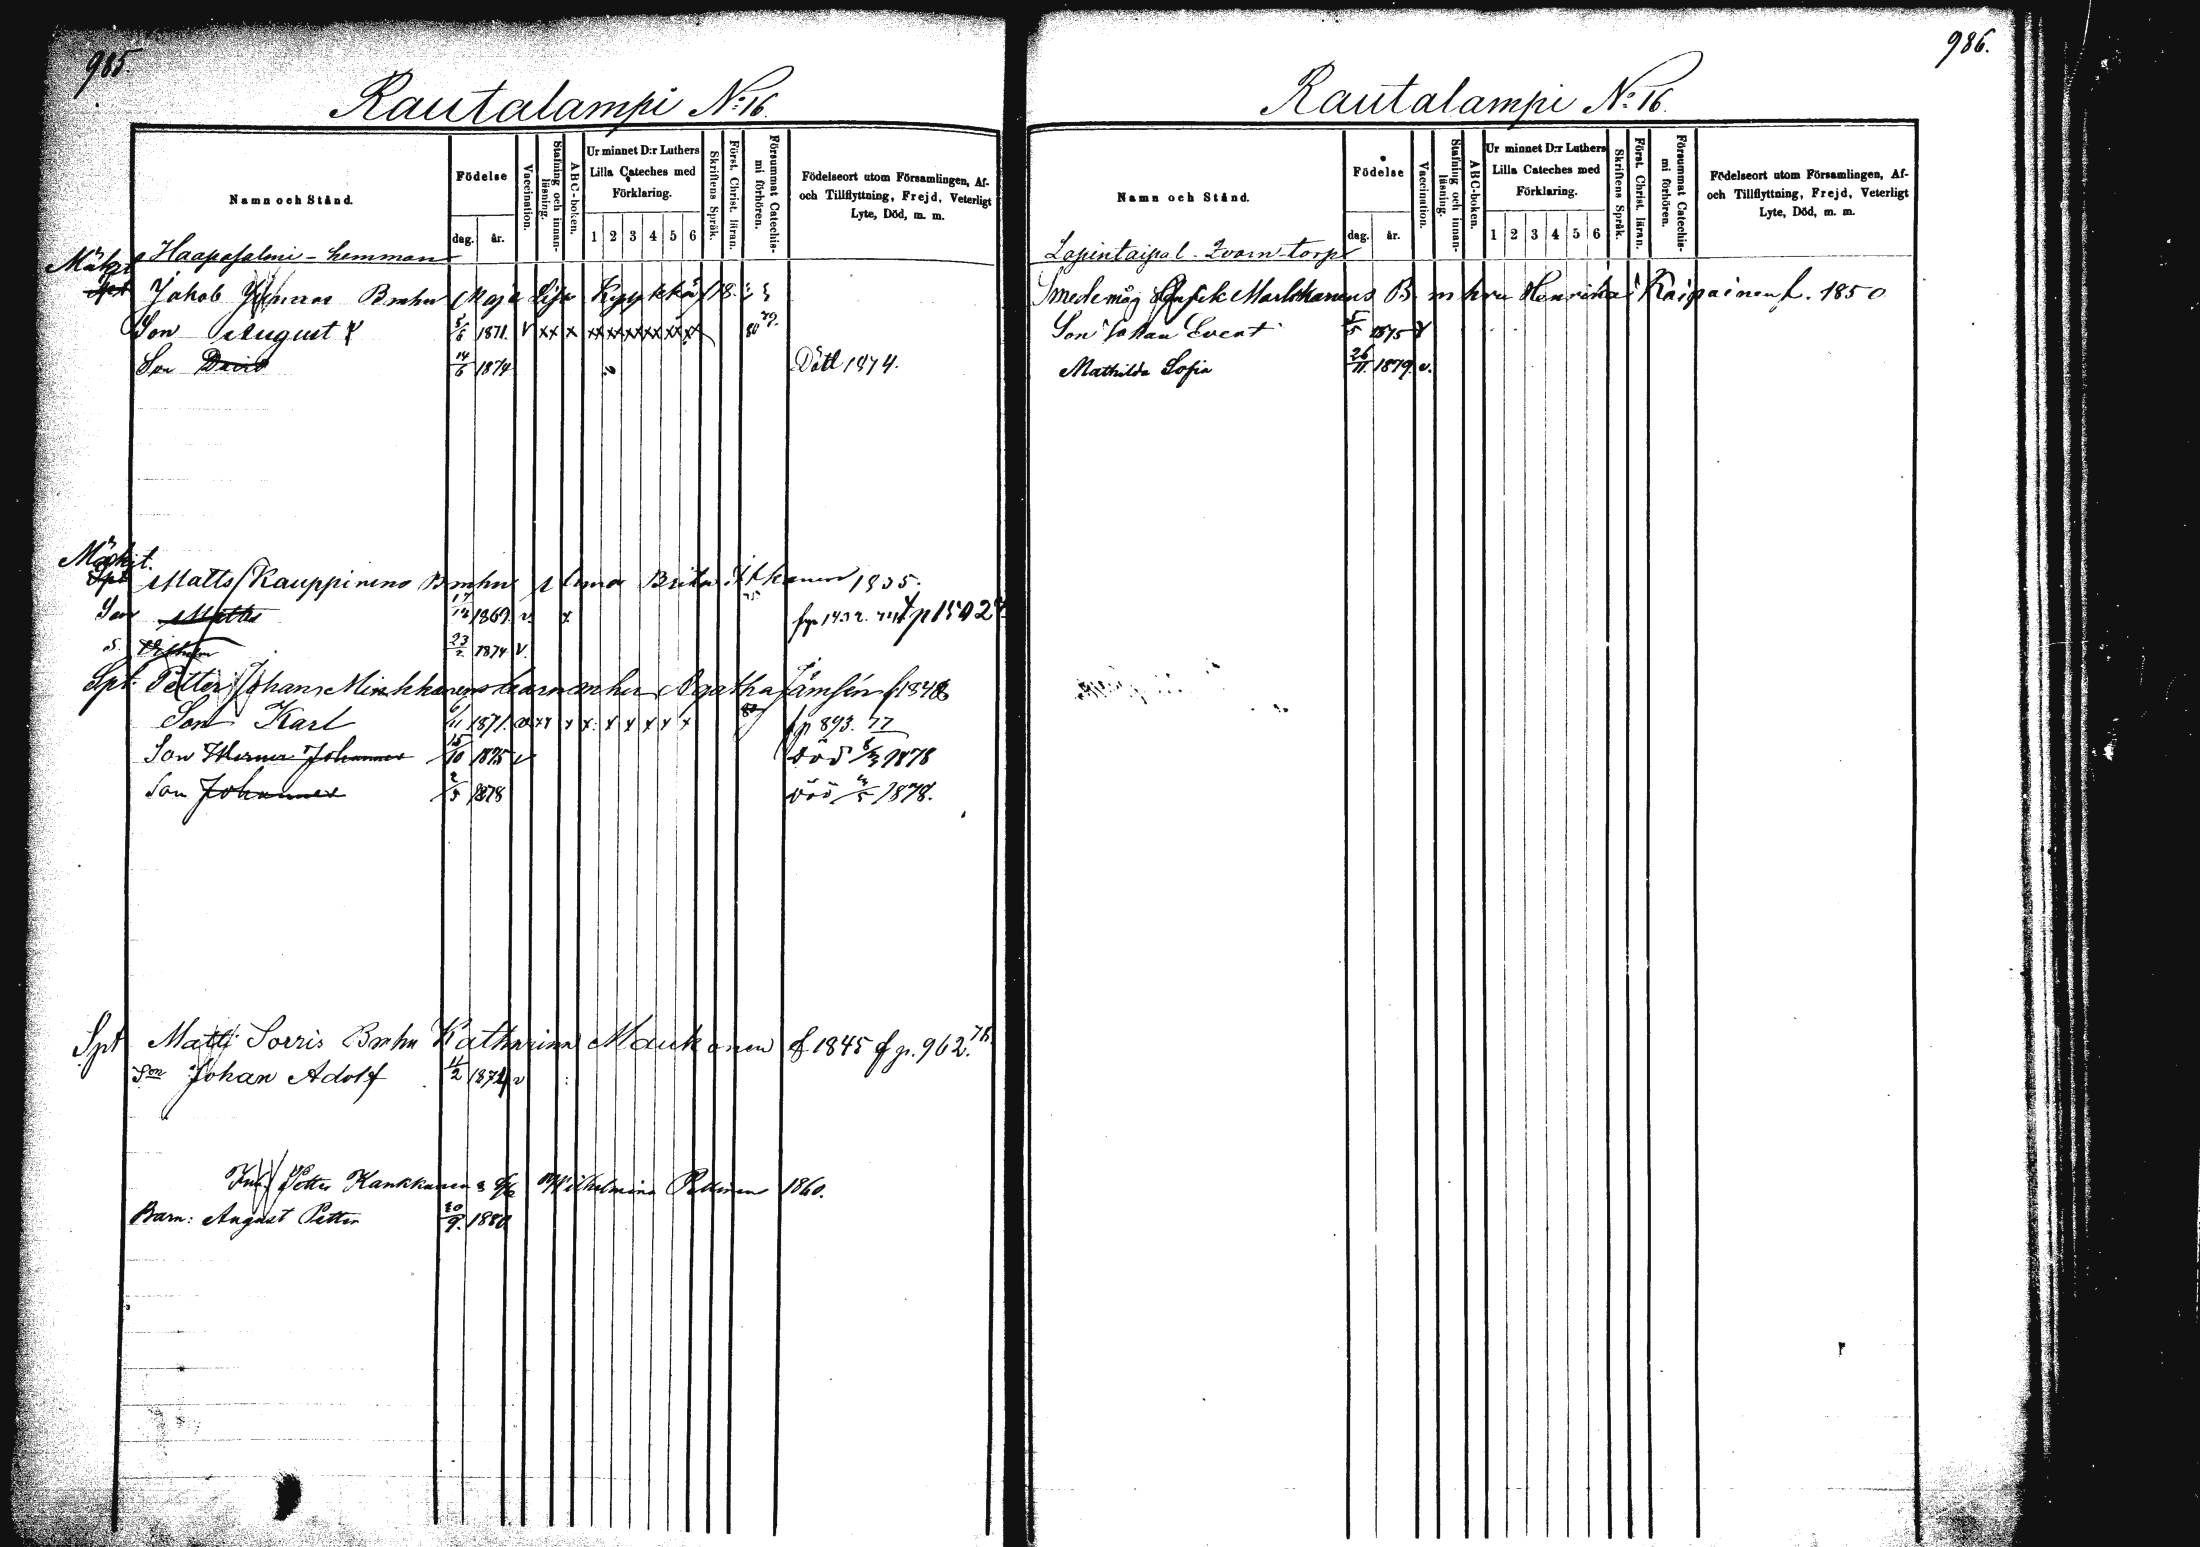 985.
Rautalampi No: 16.
Namn och Stånd.
Födelse
dag. år.
Vaccination.
Stafning och innanläsning.
ABC-boken.
Ur minnet D:r Luthers Lilla Cateches med Förklaring.
1 2 3 4 5 6
Skriftens Språk.
Först. Christ. läran.
Försummat Catechismi förhören.
Födelseort utom Församlingen, Af- och Tillflyttning, Frejd, Veterligt Lyte, Död, m. m.
Haapasalmi - hemman
Jakob Bmhu Maja Lisa Kyykkä
Son August 1871. v xx x xx xx xx xx xx xx 80 79.
Son David 14/6 1874 Död 1874.
Spt Matts Kauppinens Bmhu Anna Brita 1835.
Son Matts 17/12 1869. v. x
s. Vilhelm 23/2 1874 v.
Spt. Petter Johans Minkkanens barn mhu Agatha Jämsén f 1848
Son Karl 6/11 1871. v xx x x x x x x x 80 fp 893. 77
Son Werner Johannes 15/10 1875 v död 8/3 1878
Son Johannes 2/5 1878 död /5 1878.
Spt Matti Sorris Bmhu Katharina Maukonen f 1845 f p. 962. 78.
Son Johan Adolf 11/2 1874 v
Petter Kankkunen Wilhelmina 1860.
Barn: August Petter 20/9. 1880
986.
Rautalampi No: 16.
Namn och Stånd.
Födelse
dag. år.
Vaccination.
Stafning och innanläsning.
ABC-boken.
Ur minnet D:r Luthers Lilla Cateches med Förklaring.
1 2 3 4 5 6
Skriftens Språk.
Först. Christ. läran.
Försummat Catechismi förhören.
Födelseort utom Församlingen, Af- och Tillflyttning, Frejd, Veterligt Lyte, Död, m. m.
Lapintaipal. Qvarn-torp
Smeds måg Markkanens B. mhru Henrika Kaipainen f. 1850
Son Johan Evert 5/5 1875 v
Mathilda Sofia 26/11 1879. v.